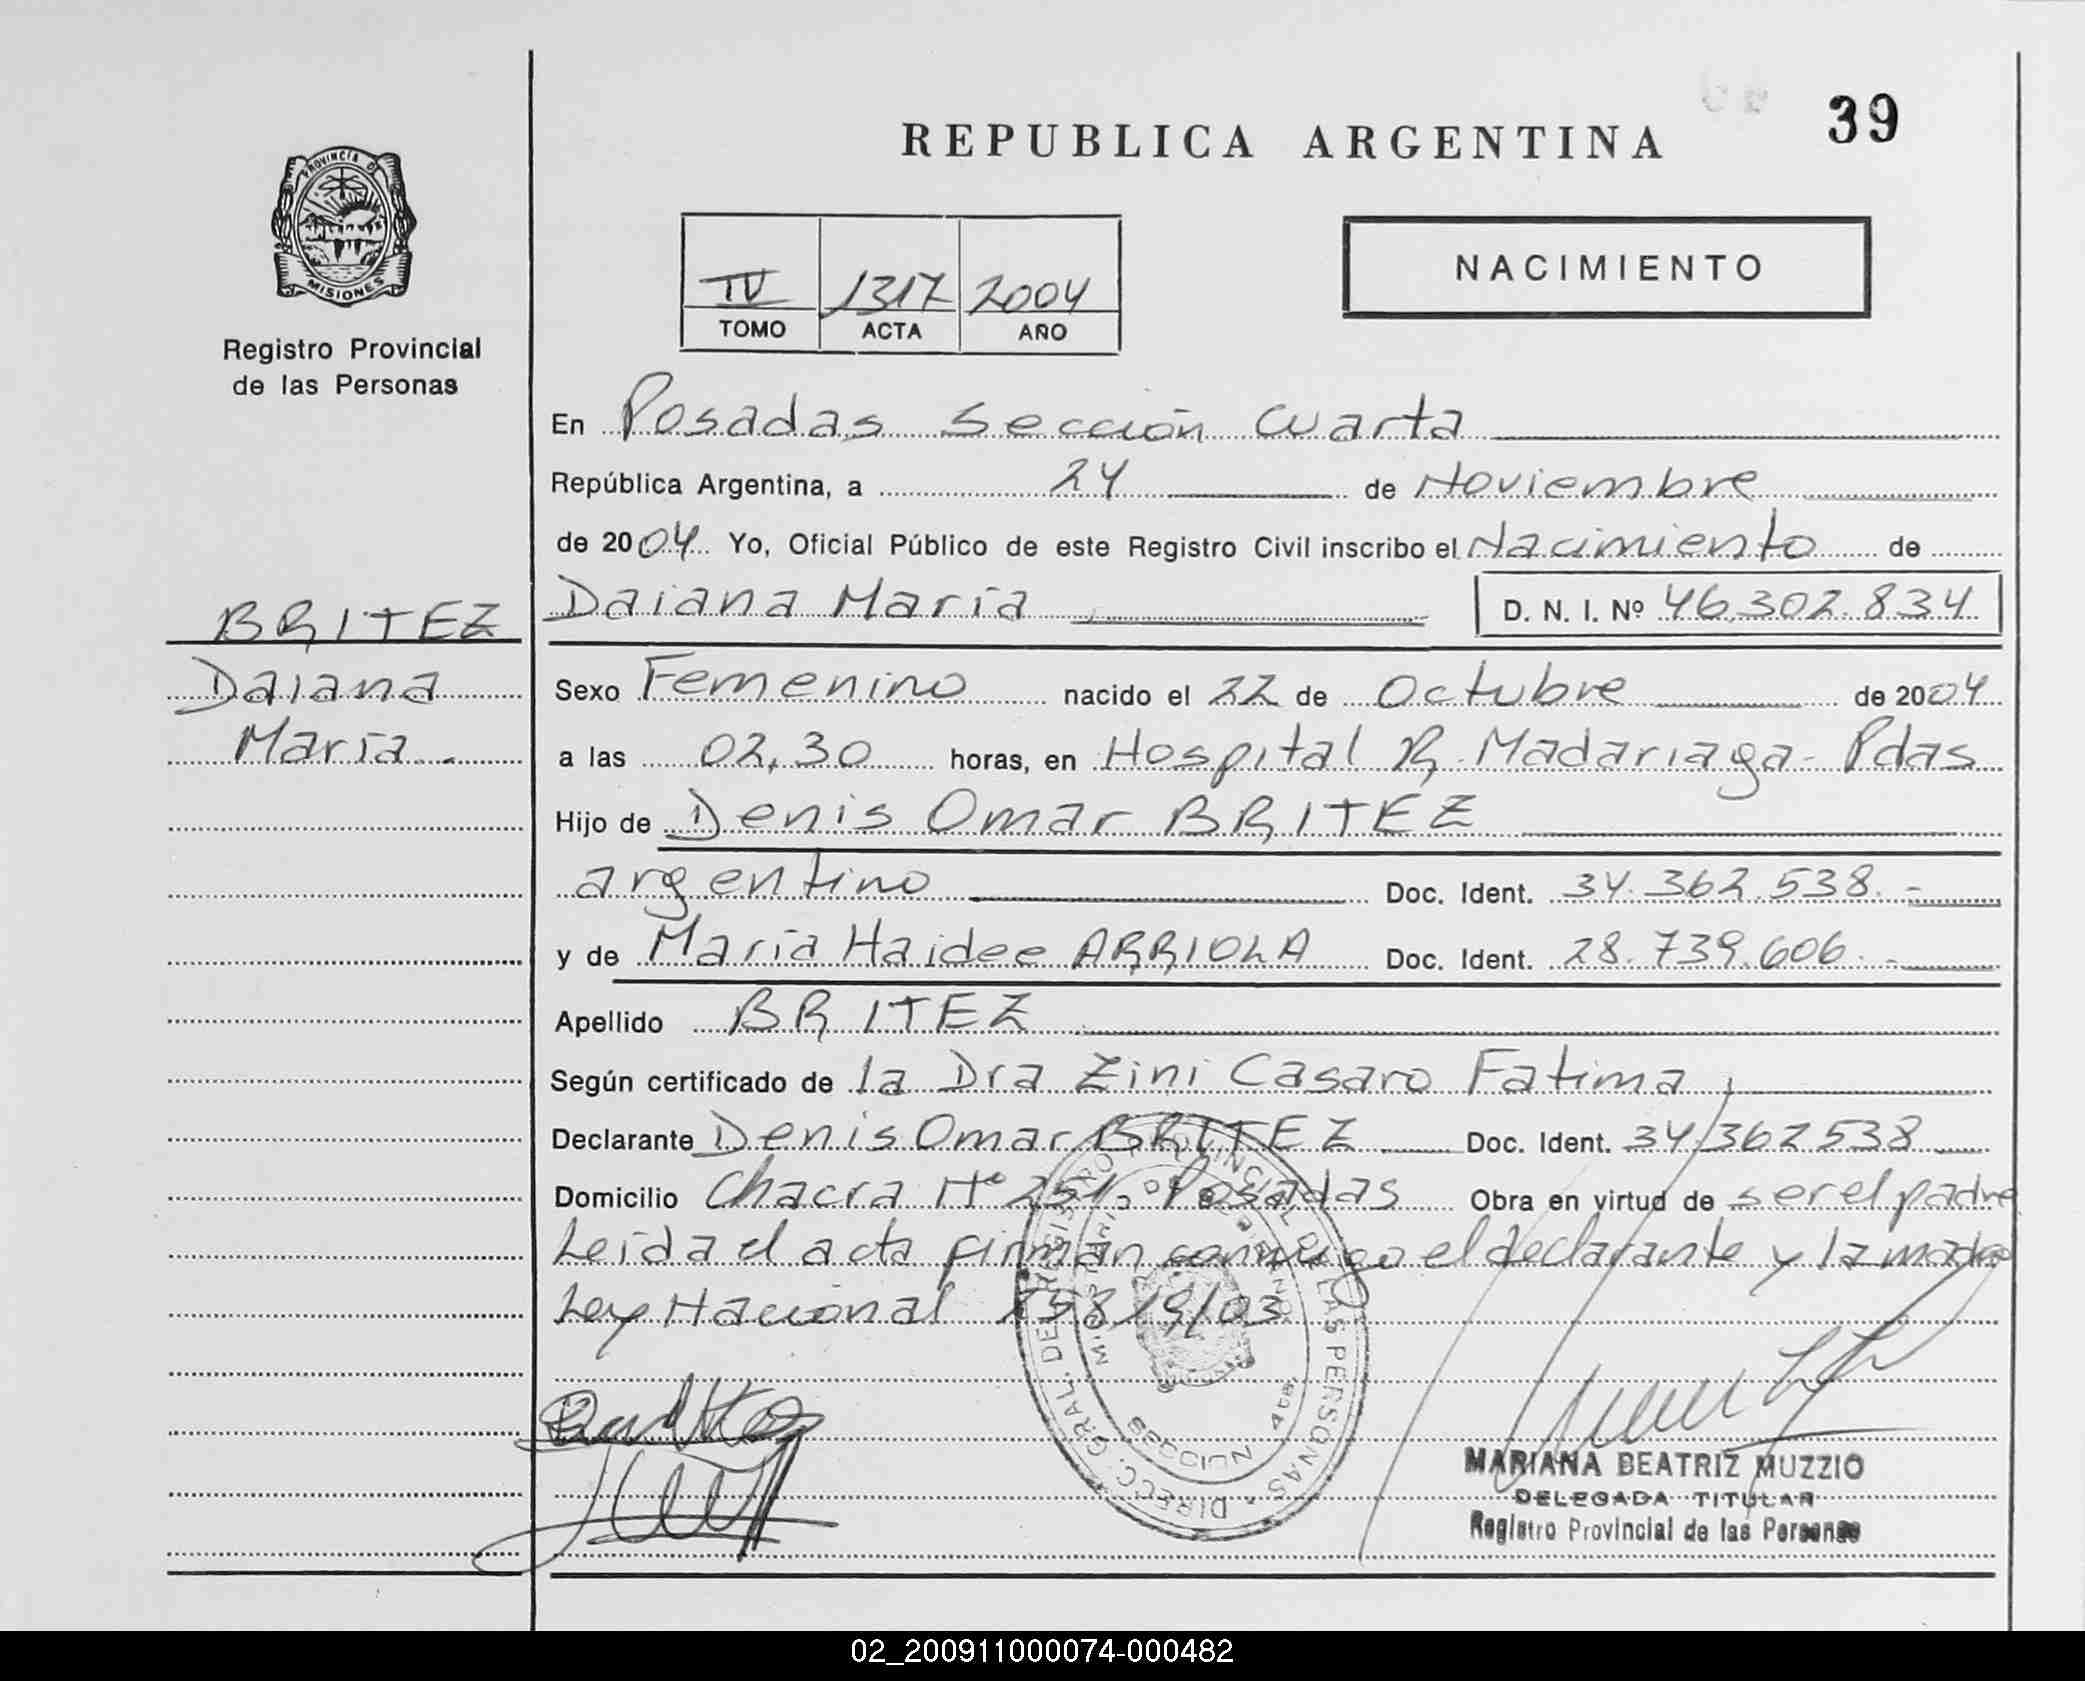 REPUBLICA ARGENTINA
39
PROVINCIA D
MISIONES
Registro Provincial
de las Personas
NACIMIENTO
IV 1317 2004
TOMO ACTA AÑO
En Posadas Sección Cuarta
República Argentina, a 24 de Noviembre
de 2004 Yo, Oficial Público de este Registro Civil inscribo el Nacimiento de
Daiana María D. N. I. Nº 46.302.834
BRITEZ
Daiana
María.-
Sexo Femenino nacido el 22 de Octubre de 2004
a las 02,30 horas, en Hospital R. Madariaga - Pdas
Hijo de Denis Omar BRITEZ
argentino Doc. Ident. 34.362.538.-
y de María Haidee ARRIOLA Doc. Ident. 28.739.606.-
Apellido BRITEZ
Según certificado de la Dra Zini Casaro Fatima
Declarante Denis Omar BRITEZ Doc. Ident. 34362538
Domicilio Chacra Nº 251. Posadas Obra en virtud de ser el padre
Leída el acta firman conmigo el declarante y la madre
Ley Nacional
DIRECC. GRAL. DEL REGISTRO PROVINCIAL DE LAS PERSONAS
MARIANA BEATRIZ MUZZIO
DELEGADA TITULAR
Registro Provincial de las Personas
02_200911000074-000482